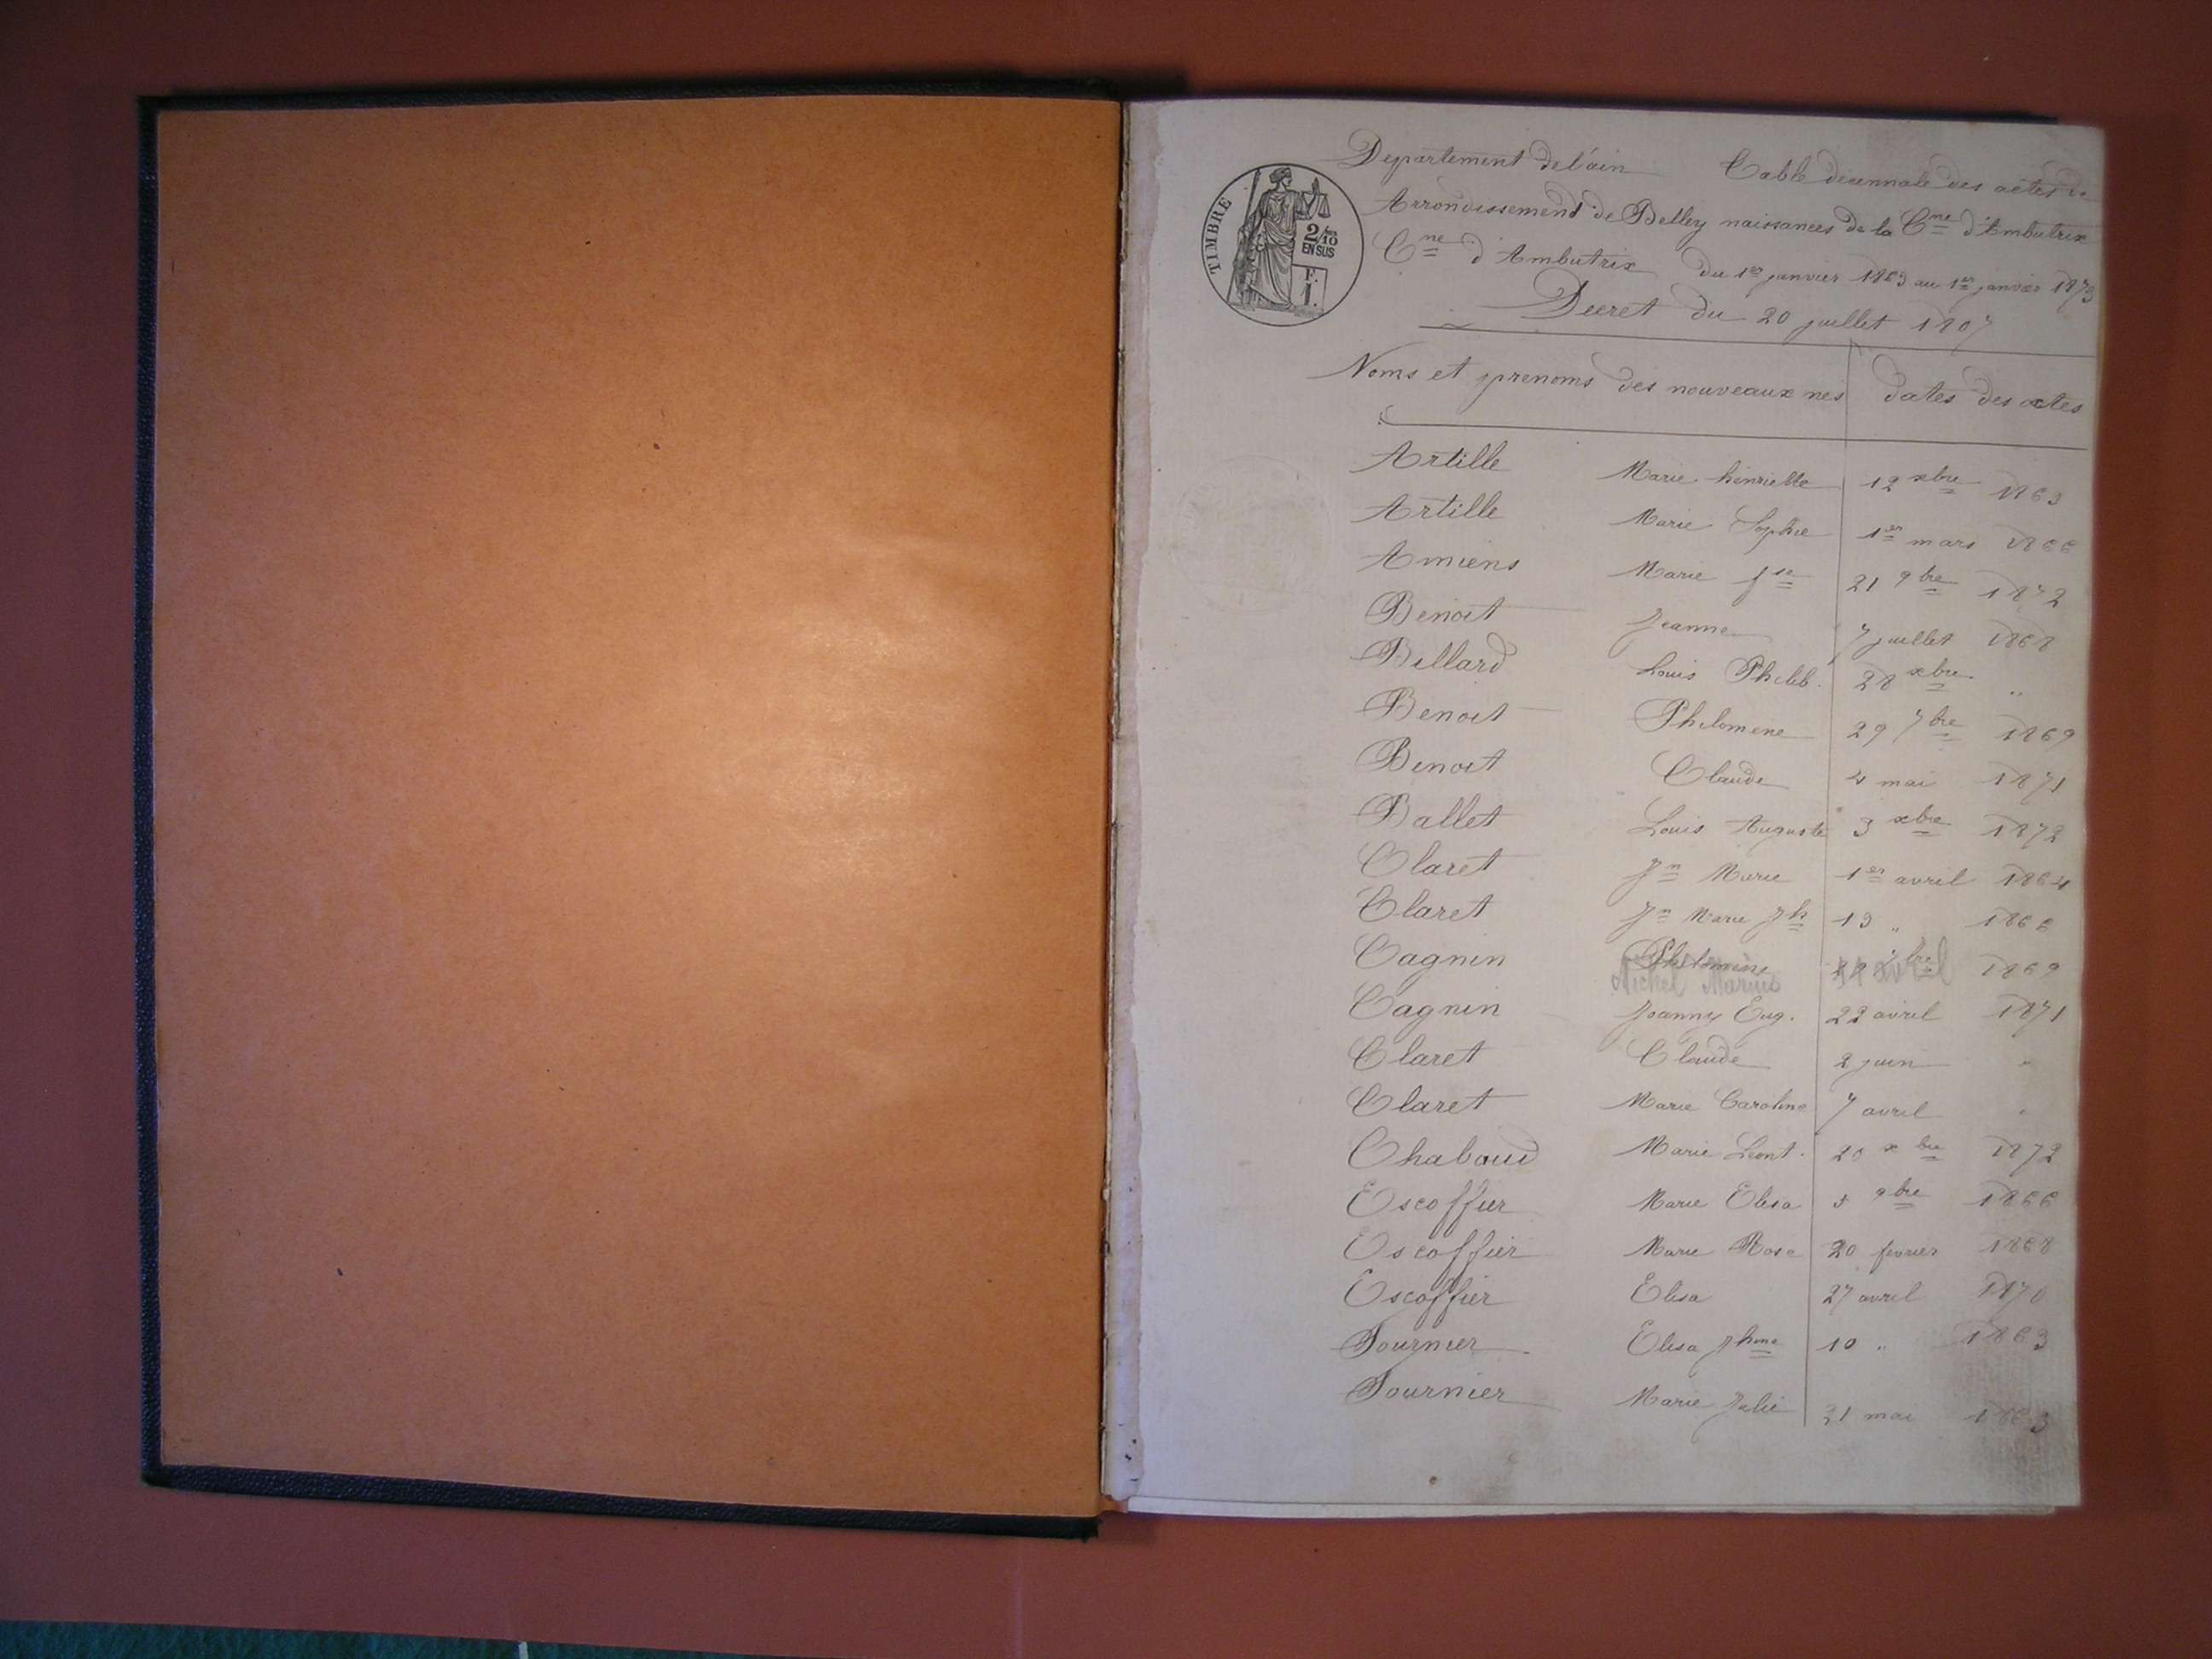 TIMBRE
2/10 EN SUS
F. 1.
Departement de l'ain Table décennale des actes de
Arrondissement de Belley naissances de la Cne d'Ambutrix
Cne d'Ambutrix du 1er janvier 1863 au 1er janvier 1873
Decret du 20 juillet 1807
Noms et prenoms des nouveaux nés dates des actes
Artille Marie henriette 12 xbre 1863
Artille Marie Sophie 1er mars 1866
Amiens Marie jse 21 9bre 1872
Benoit Jeanne 7 juillet 1868
Billard Louis Philib. 28 xbre "
Benoit Philomene 29 7bre 1869
Benoit Claude 4 mai 1871
Ballet Louis Auguste 3 xbre 1872
Claret Jn Marie 1er avril 1864
Claret Jn Marie Jh 13 " 1866
Cagnin Philomène 1869
Michel Marius avril
Cagnin Joanny Eug. 22 avril 1871
Claret Claude 2 juin "
Claret Marie Caroline 7 avril "
Chaboud Marie Leont. 20 xbre 1872
Escoffier Marie Elisa 5 9bre 1866
Escoffier Marie Rose 20 fevrier 1868
Escoffier Elisa 27 avril 1870
Fournier Elisa jhine 10 " 1863
Fournier Marie Julie 21 mai 1863